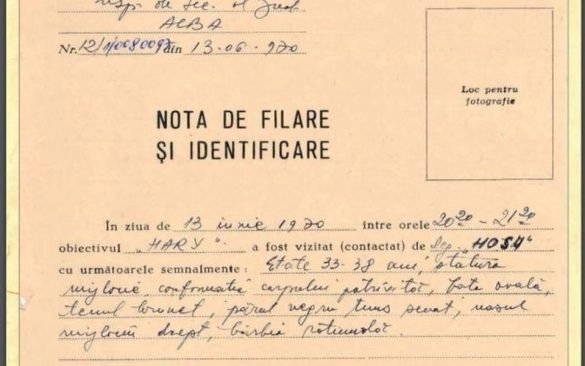 Insp. de Sec. al Jud.
ALBA
Nr. 12/1/0068009 din 13.06.970
Loc pentru
fotografie
NOTA DE FILARE
ȘI IDENTIFICARE
În ziua de 13 iunie 1970 între orele 20²⁰ – 21²⁰
obiectivul „HARY". a fost vizitat (contactat) de leg. „HOSU"
cu următoarele semnalmente : Etate 33-38 ani, statură
mijlocie conformația corpului potrivită, fața ovală,
tenul brunet, părul negru tuns scurt, nasul
mijlociu drept, bărbia